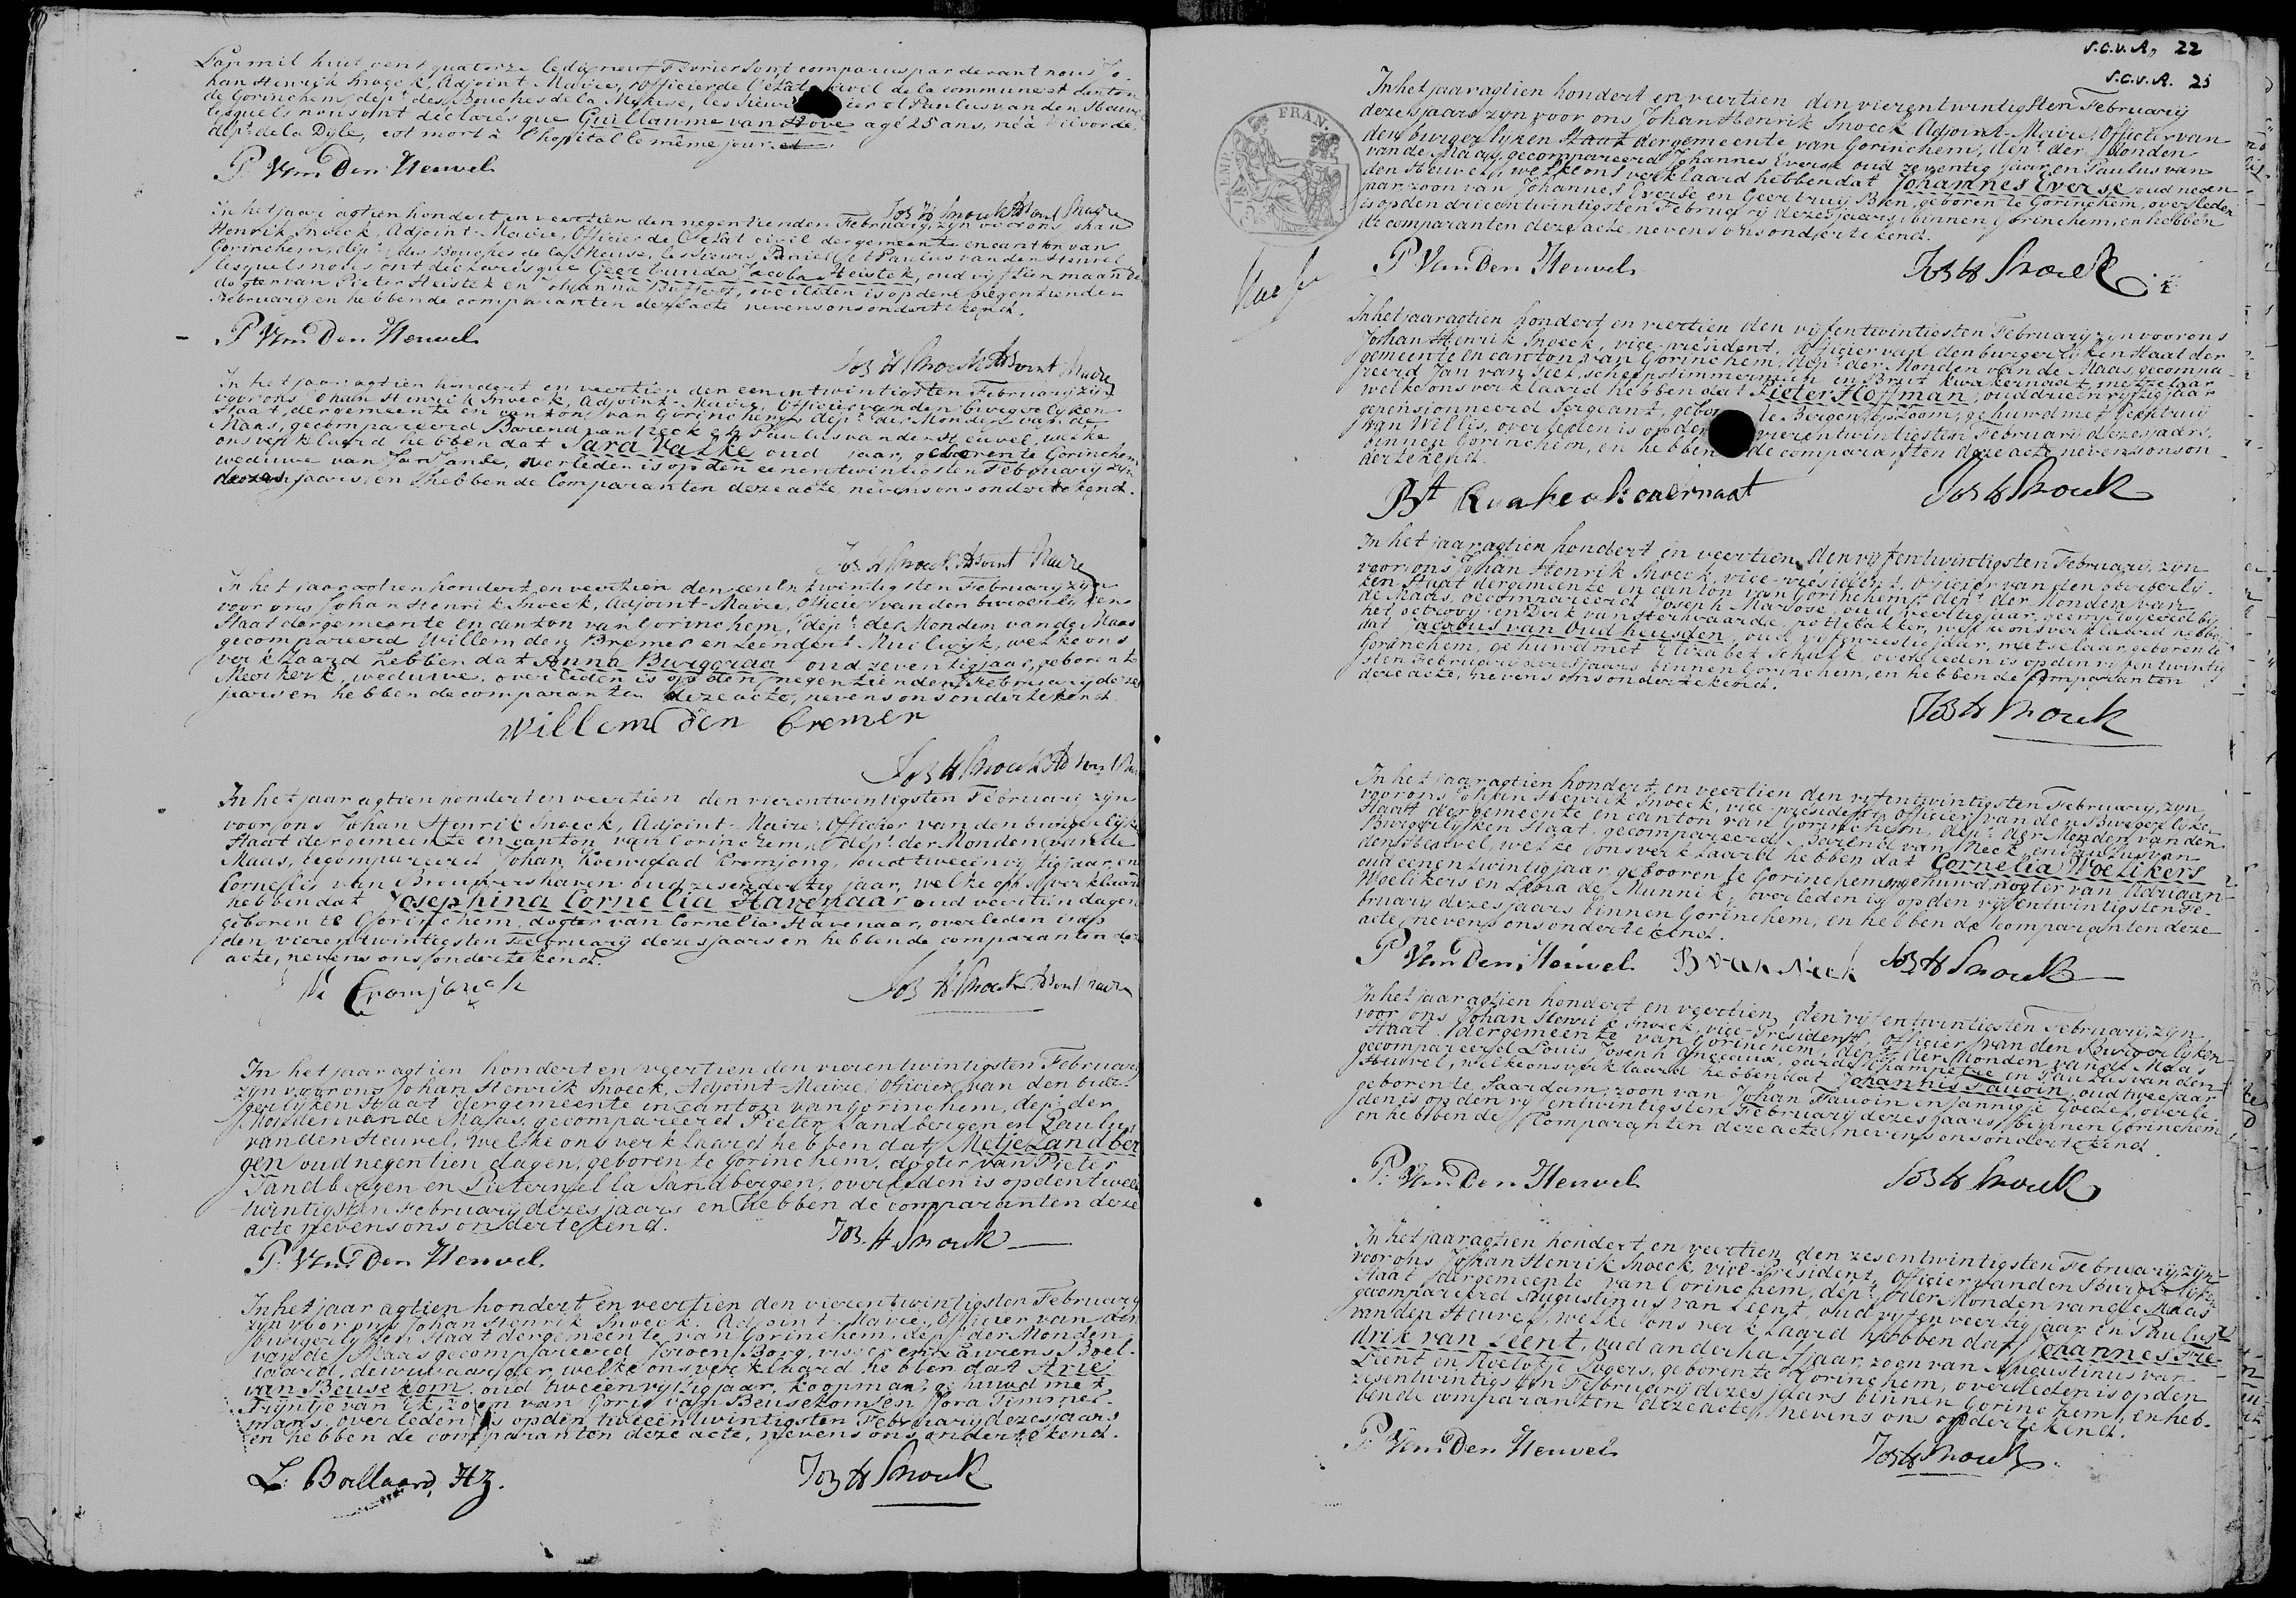 L'an mil huit cent quatorze le dix neuf Fevrier sont comparus par devant nous Jo-
han Henrik Snoeck, Adjoint-Maire, Officier de l'etat civil de la commune et canton
de Gorinchem, dept. des Bouches de la Meuse, les Sieurs et Paulus van den Heuvel
lesquels nous ont déclarés que Guillaume van Hove agé 25 ans, né à Vilvorde,
dept. de la Dyle, est mort à l'hopital le même jour.
P. Van Den Heuvel
Joh H Snoeck Adjoint Maire
In het jaar agtien hondert en veertien den negentienden February, zyn voor ons Johan
Henrik Snoeck, Adjoint-Maire, Officier de l'etat civil der gemeente en canton van
Gorinchem, dept. des Bouches de la Meuse, les Sieurs Daniel et Paulus van den Heuvel
lesquels nous ont declarés que Geertruida Jacoba Heistek, oud vyftien maanden
dogter van Pieter Heistek en Johanna, overleden is op den negentienden
February en hebben de comparanten deze acte nevens ons ondertekend.
P. Van Den Heuvel
Joh H Snoeck Adjoint Maire
In het jaar agtien hondert en veertien den eenentwintigsten February zyn
voor ons Johan Henrik Snoeck, Adjoint-Maire, Officier van den burgerlyken
Staat, der gemeente en canton van Gorinchem, dept. der Monden van de
Maas, gecompareerd Barend van Neck en Paulus van den Heuvel, welke
ons verklaard hebben dat Sara Valke oud jaar, geboren te Gorinchem
weduwe van Jan, overleden is op den eenentwintigsten February
dezes jaars, en hebben de Comparanten deze acte nevens ons ondertekend.
Joh H Snoeck Adjoint Maire
In het jaar agtien hondert en veertien den eenentwintigsten February zyn
voor ons Johan Henrik Snoeck, Adjoint-Maire, Officier van den burgerlyken
Staat der gemeente en canton van Gorinchem, dept. der Monden van de Maas
gecompareerd Willem den Bremer en Leendert Muilwijk, welke ons
verklaard hebben dat Anna Burggraa oud zeventig jaar, geboren te
Meerkerk, weduwe, overleden is op den negentienden February dezes
jaars en hebben de comparanten deze acte, nevens ons ondertekend.
Willem den Bremer
Joh H Snoeck Adjoint Maire
In het jaar agtien hondert en veertien den vierentwintigsten February zyn
voor ons Johan Henrik Snoeck, Adjoint-Maire, Officier van den burgerlyken
Staat der gemeente en canton van Gorinchem, dept. der Monden van de
Maas, gecompareerd Johan Koenraad Cromjong, oud tweeenvyftig jaar, en
Cornelis van Brouwershaven oud zesendertig jaar, welke ons verklaard
hebben dat Josephina Cornelia Havenaar oud veertien dagen
geboren te Gorinchem, dogter van Cornelia Havenaar, overleden is op
den vierentwintigsten February dezes jaars en hebben de comparanten deze
acte, nevens ons ondertekend.
Joh H Snoeck Adjoint Maire
In het jaar agtien hondert en veertien den vierentwintigsten February
zyn voor ons Johan Henrik Snoeck, Adjoint-Maire, Officier van den bur-
gerlyken Staat der gemeente en canton van Gorinchem, dept. der
Monden van de Maas, gecompareerd Pieter Zandbergen en Paulus
van den Heuvel, welke ons verklaard hebben dat Metje Zandber
gen oud negentien dagen, geboren te Gorinchem, dogter van Pieter
Zandbergen en Pieternella Zandbergen, overleden is op den tweeen
twintigsten February dezes jaars en hebben de comparanten deze
acte nevens ons ondertekend.
Joh. H Snoeck
P. Van Den Heuvel
In het jaar agtien hondert en veertien den vierentwintigsten February
zyn voor ons Johan Henrik Snoeck, Adjoint-Maire, Officier van den
burgerlyken Staat der gemeente van Gorinchem, dept. der Monden
van de Maas gecompareerd Jeroen Borg, visser en Lauwrens Boel-
laard, deurwaarder, welke ons verklaard hebben dat Arie
van Beusekom, oud tweeenvyftig jaar, koopman, gehuwd met
Tryntje van Ek, zoon van Goris van Beusekom en Flora Timmer-
mans, overleden is op den tweeentwintigsten February dezes jaars
en hebben de comparanten deze acte, nevens ons ondertekend.
L. Boellaard, Hz.
Joh H Snoeck
S.O.V.A. 22
S.O.V.A. 23
EMP. FRAN.
In het jaar agtien hondert en veertien den vierentwintigsten February
dezes jaars zyn voor ons Johan Henrik Snoeck Adjoint-Maire, Officier van
den burgerlyken Staat der gemeente van Gorinchem, dept. der Monden
van de Maas, gecompareerd Johannes Everse oud zeventig jaar en Paulus van
den Heuvel, welke ons verklaard hebben dat Johannes Everse oud negen
jaar zoon van Johannes Everse en Geertruy Blen, geboren te Gorinchem, overleden
is op den drieentwintigsten February dezes jaars, binnen Gorinchem, en hebben
de comparanten deze acte, nevens ons ondertekend.
P. Van Den Heuvel
Joh H Snoeck
In het jaar agtien hondert en veertien den vyfentwintigsten February zyn voor ons
Johan Henrik Snoeck, vice-président, Officier van den burgerlyken Staat der
gemeente en canton van Gorinchem, dept. der Monden van de Maas, gecompa-
reerd Jan van Seel, scheepstimmerman en Brut Kwakernaat, metzelaar
welke ons verklaard hebben dat Pieter Hoffman, oud drieenvyftig jaar
gepensionneerd Sergeant, geboren te Bergen op Zoom, gehuwd met Geertruy
van Willis, overleden is op den vierentwintigsten February dezes jaars,
binnen Gorinchem, en hebben de comparanten deze acte nevens ons on-
dertekend.
Joh H Snoeck
In het jaar agtien hondert en veertien, den vyfentwintigsten February, zyn
voor ons Johan Henrik Snoeck, vice-president, Officier van den burgerly-
ken Staat der gemeente en canton van Gorinchem, dept. der Monden van
de Maas, gecompareerd Joseph Marose, oud veertig jaar, geemployeerd by
het octrooy en Dirk van Sterkvaarde, pottebakker, welke ons verklaard hebben
dat Jacobus van Oudheusden, oud vyfenzestig jaar, metselaar, geboren te
Gorinchem, gehuwd met Elizabet Schulk, overleden is op den vyfentwintig
sten February dezes jaars binnen Gorinchem, en hebben de Comparanten
deze acte, nevens ons ondertekend.
Joh H Snoeck
In het jaar agtien hondert, en veertien den vyfentwintigsten February, zyn
voor ons Johan Henrik Snoeck, vice-president, Officier van den Burgerlyken
Staat der gemeente en canton van Gorinchem, dept. der Monden van den
Burgerlyken Staat, gecompareerd Barend van Neck, en Paulus van
den Heuvel, welke ons verklaard hebben dat Cornelia Woelikers
oud eenentwintig jaar geboren te Gorinchem ongehuwd, dogter van Adriaan
Woelikers en Lybia de Munnik, overleden is op den vyfentwintigsten Fe-
bruary dezes jaars binnen Gorinchem, en hebben de comparanten deze
acte nevens ons ondertekend.
P. Van Den Heuvel B van Neck Joh H Snoeck
In het jaar agtien hondert en veertien, den vyfentwintigsten February, zyn
voor ons Johan Henrik Snoeck, vice-President, Officier van den Burgerlyken
Staat der gemeente van Gorinchem, dept. der Monden van de Maas
gecompareerd Louis Joseph, garde champetre en Paulus van den
Heuvel, welke ons verklaard hebben dat Johannis Fauvoin, oud twee jaar
geboren te Saardam, zoon van Johan Fauvoin en Jannigje Goedel, overle-
den is op den vyfentwintigsten February dezes jaars, binnen Gorinchem
en hebben de Comparanten deze acte, nevens ons ondertekend.
P. Van Den Heuvel
Joh H Snoeck
In het jaar agtien hondert en veertien, den zesentwintigsten February, zyn
voor ons Johan Henrik Snoeck, vice-President, Officier van den Burgerlyken
Staat der gemeente van Gorinchem, dept. der Monden van de Maas
gecompareerd Augustinus van Leent, oud vyfenveertig jaar en Paulus
van den Heuvel, welke ons verklaard hebben dat Johannes Fre-
drik van Leent, oud anderhalf jaar, zoon van Augustinus van
Leent en Roelofje Rogers, geboren te Gorinchem, overleden is op den
zesentwintigsten February dezes jaars binnen Gorinchem, en heb-
bende comparanten deze acte, nevens ons ondertekend.
P. Van Den Heuvel
Joh H Snoeck